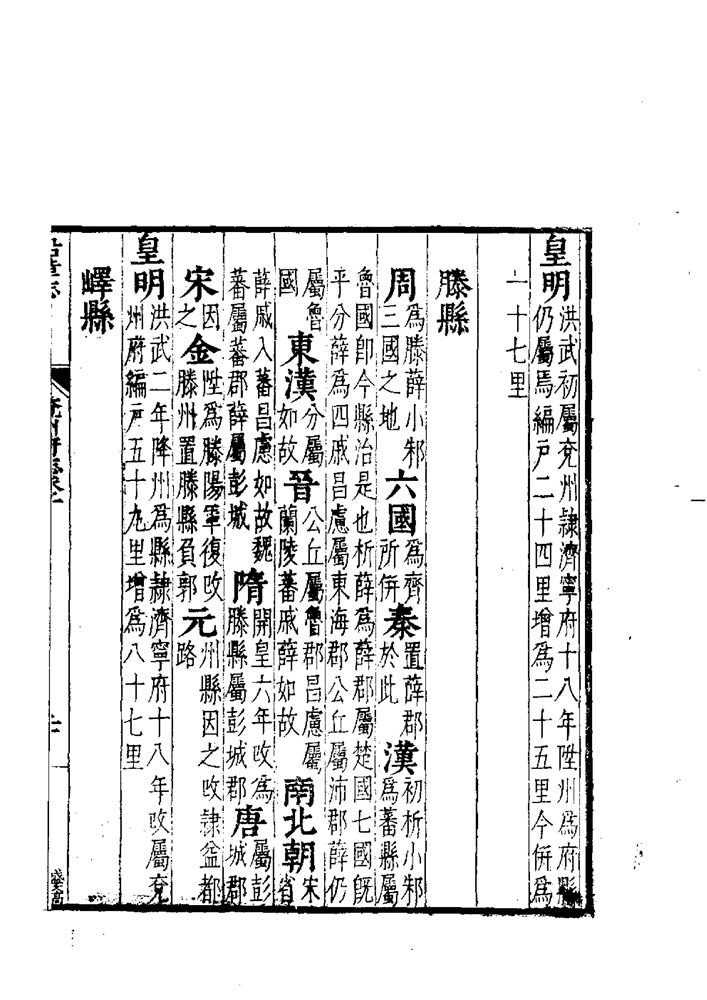 皇明洪武初屬兗州隸濟寧府十八年陞州為府縣仍屬焉編戶二十四里增為二十五里今併為
一十七里
滕縣
周為滕薛小邾三國之地六國為齊所併秦置薛郡於此漢初析小邾為蕃縣屬
魯國卽今縣治是也析薛為薛郡屬楚國七國旣平分薛為四戚昌慮屬東海郡公丘屬沛郡薛仍
屬魯國東漢分屬如故晉公丘屬魯郡昌慮屬蘭陵蕃戚薛如故南北朝宋省
薛戚入蕃昌慮如故魏蕃屬蕃郡薛屬彭城隋開皇六年改為滕縣屬彭城郡唐屬彭城郡
宋因之金陞為滕陽軍復改滕州置滕縣負郭元州縣因之改隸益都路
皇明洪武二年降州為縣隸濟寧府十八年改屬兗州府編戶五十九里增為八十七里
嶧縣